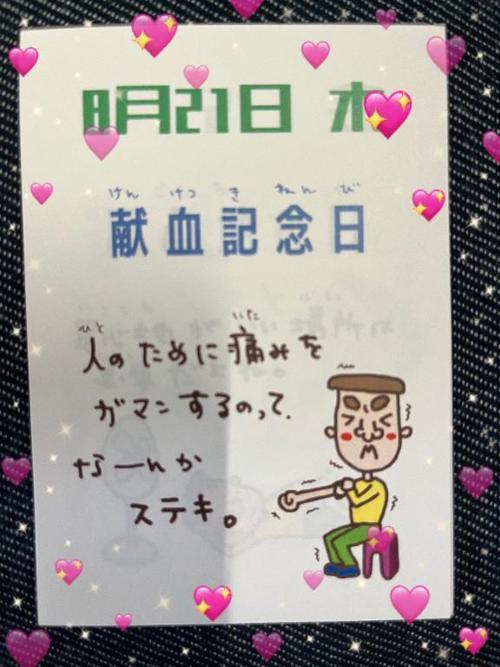 8月21日 木
けん けつ き ねん び
献血記念日
ひと いた
人のために痛みを
ガマンするのって、
なーんか
ステキ。